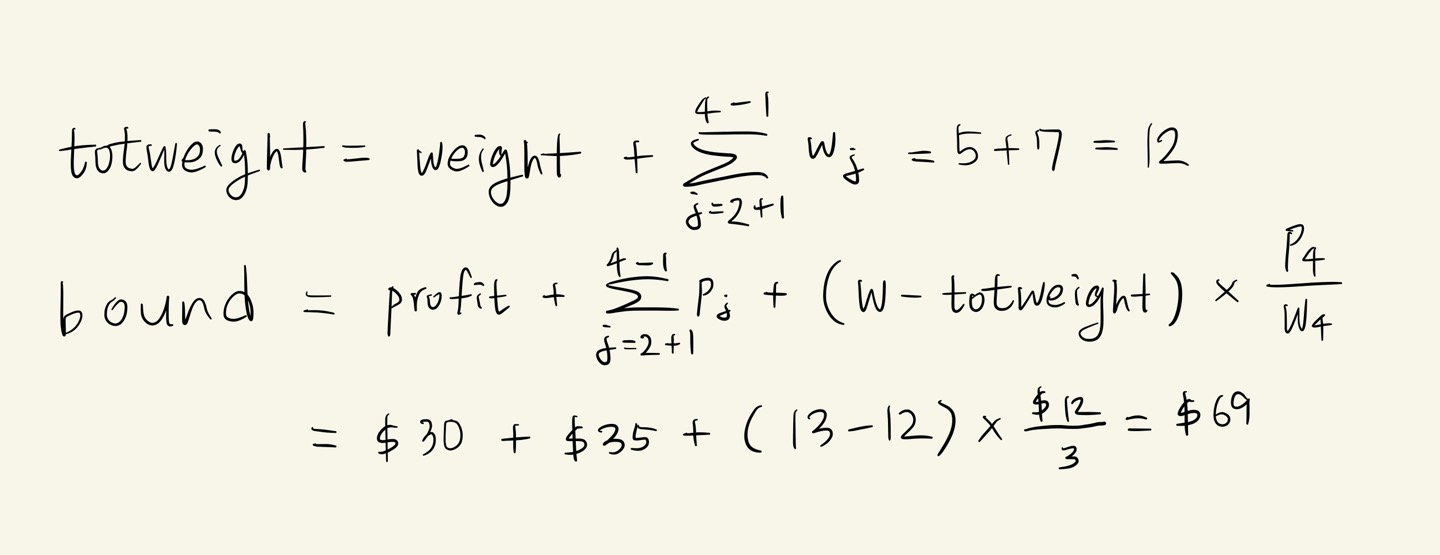 totweight = weight + \sum_{j=2+1}^{4-1} w_j = 5 + 7 = 12
bound = profit + \sum_{j=2+1}^{4-1} P_j + (W - totweight) × \frac{P_4}{W_4}
= $30 + $35 + (13 - 12) × \frac{$12}{3} = $69